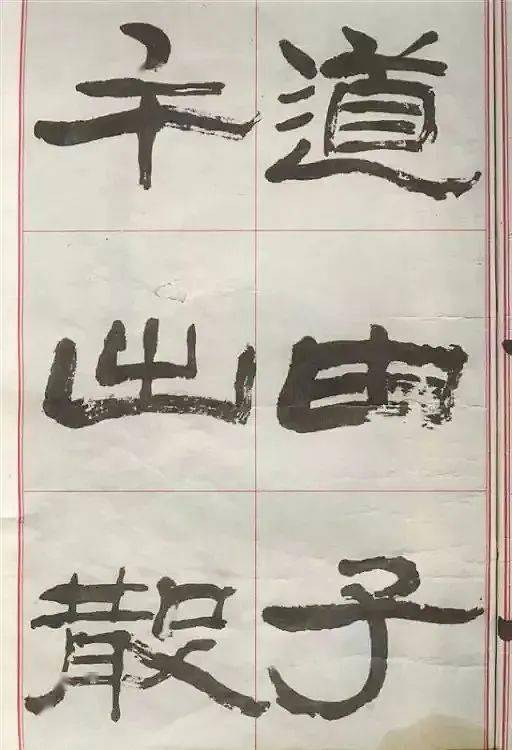 道由子
午出散